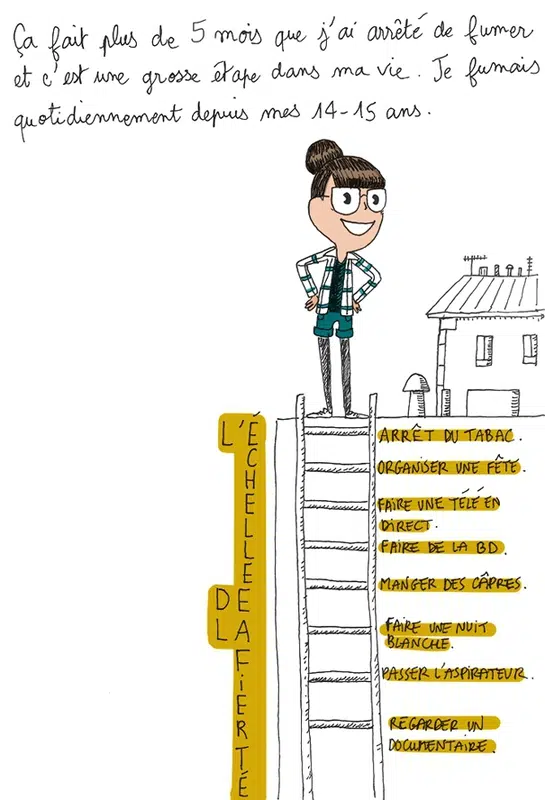 Ça fait plus de 5 mois que j'ai arrêté de fumer
et c'est une grosse étape dans ma vie. Je fumais
quotidiennement depuis mes 14-15 ans.
L'ÉCHELLE DE LA FIERTÉ
ARRÊT DU TABAC.
ORGANISER UNE FÊTE.
FAIRE UNE TÉLÉ EN
DIRECT.
FAIRE DE LA BD.
MANGER DES CÂPRES.
FAIRE UNE NUIT
BLANCHE.
PASSER L'ASPIRATEUR.
REGARDER UN
DOCUMENTAIRE.